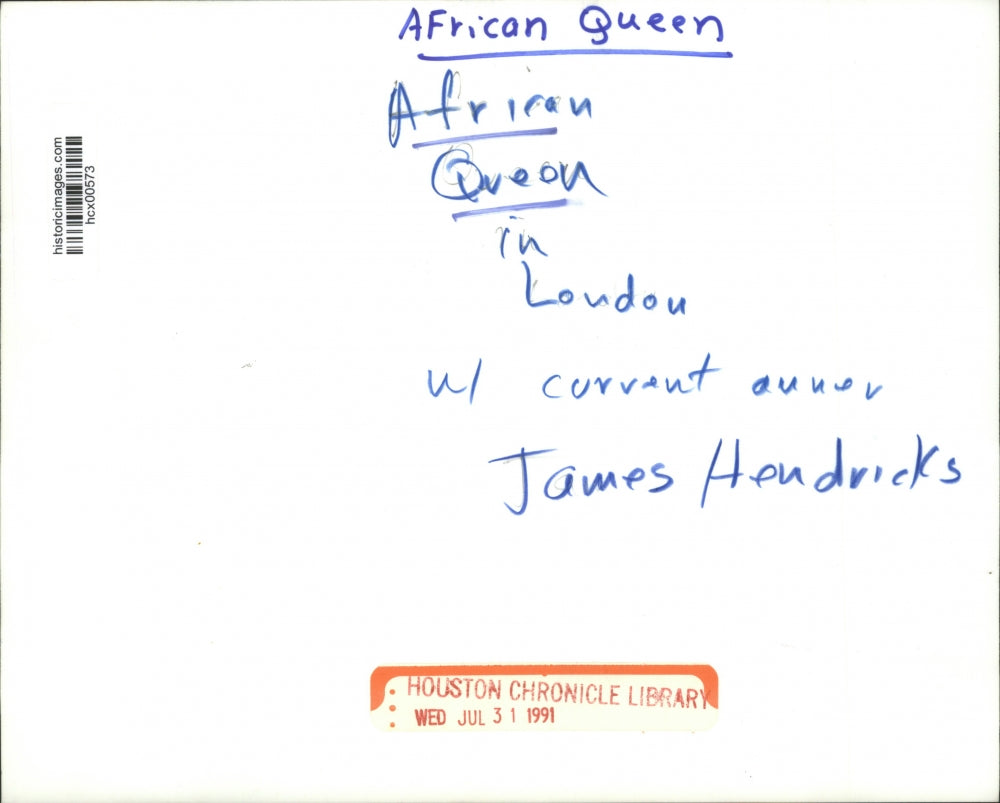 African Queen
African
Queen
in
London
w/ current owner
James Hendricks
historicimages.com
hcx00573
HOUSTON CHRONICLE LIBRARY
WED JUL 31 1991